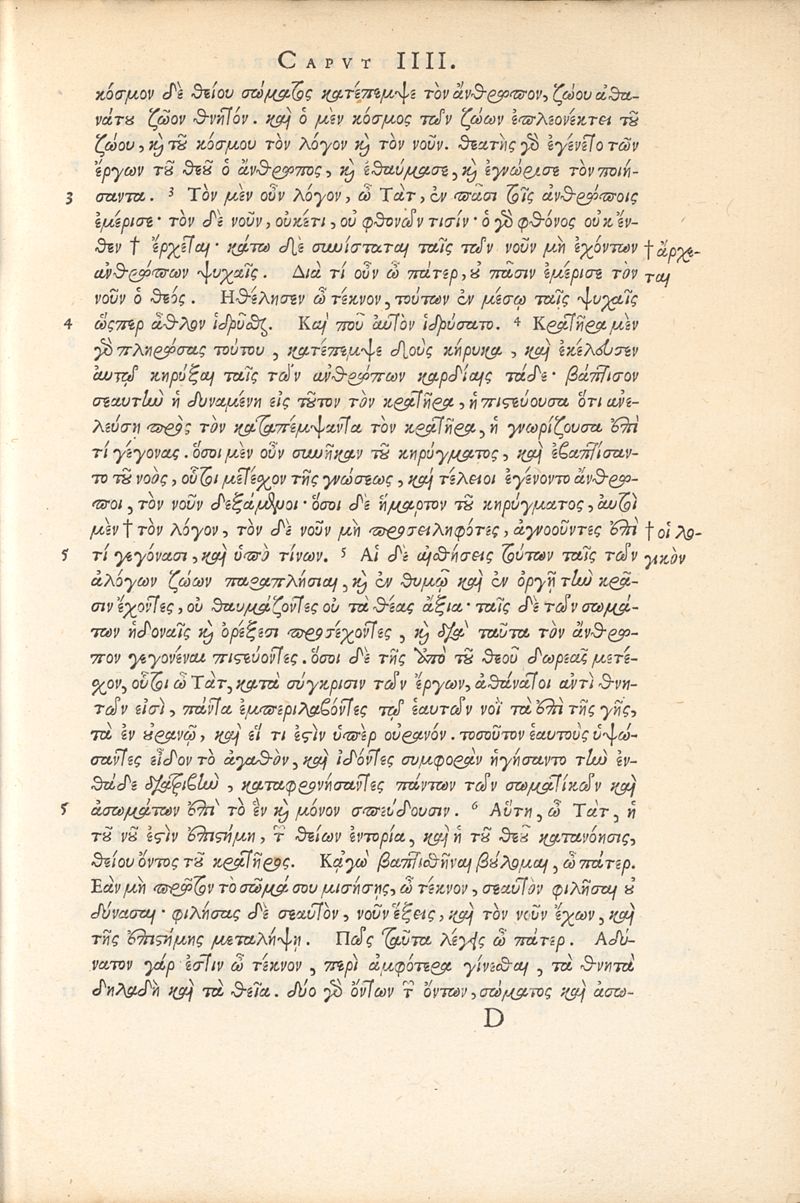 CAPVT IIII.
κόσμον δὲ θείου σώματος κατέπεμψε τὸν ἄνθρωπον, ζώου ἀθα-
νάτου ζῶον θνητόν. καὶ ὁ μὲν κόσμος τῶν ζώων ἐπλεονέκτει τοῦ
ζώου, καὶ τοῦ κόσμου τὸν λόγον καὶ τὸν νοῦν. θεατὴς γὰρ ἐγένετο τῶν
ἔργων τοῦ θεοῦ ὁ ἄνθρωπος, καὶ ἐθαύμασε, καὶ ἐγνώρισε τὸν ποιή-
3 σαντα. 3 Τὸν μὲν οὖν λόγον, ὦ Τὰτ, ἐν πᾶσι τοῖς ἀνθρώποις
ἐμέρισε· τὸν δὲ νοῦν, οὐκέτι, οὐ φθονῶν τισίν· ὁ γὰρ φθόνος οὐκ ἔν-
θεν † ἔρχεται· κάτω δὲ συνίσταται ταῖς τῶν νοῦν μὴ ἐχόντων † ἄρχε-
ἀνθρώπων ψυχαῖς. Διὰ τί οὖν ὦ πάτερ, οὐ πᾶσιν ἐμέρισε τὸν ται
νοῦν ὁ θεός. Ηθέλησεν ὦ τέκνον, τούτων ἐν μέσῳ ταῖς ψυχαῖς
4 ὥσπερ ἆθλον ἱδρῦσθαι. Καὶ ποῦ αὐτὸν ἱδρύσατο. 4 Κρατῆρα μὲν
γὰρ πληρώσας τούτου, κατέπεμψε δοὺς κήρυκα, καὶ ἐκέλευσεν
αὐτῷ κηρύξαι ταῖς τῶν ἀνθρώπων καρδίαις τάδε· βάπτισον
σεαυτὴν ἡ δυναμένη εἰς τοῦτον τὸν κρατῆρα, ἡ πιστεύουσα ὅτι ἀνε-
λεύσῃ πρὸς τὸν καταπέμψαντα τὸν κρατῆρα, ἡ γνωρίζουσα ἐπὶ
τί γέγονας. ὅσοι μὲν οὖν συνῆκαν τοῦ κηρύγματος, καὶ ἐβαπτίσαν-
το τοῦ νοὸς, οὗτοι μετέχον τῆς γνώσεως, καὶ τέλειοι ἐγένοντο ἄνθρω-
ποι, τὸν νοῦν δεξάμενοι· ὅσοι δὲ ἥμαρτον τοῦ κηρύγματος, αὐτοὶ
μὲν † τὸν λόγον, τὸν δὲ νοῦν μὴ προσειληφότες, ἀγνοοῦντες ἐπὶ † οἱ λο-
5 τί γεγόνασι, καὶ ὑπὸ τίνων. 5 Αἱ δὲ αἰσθήσεις τούτων ταῖς τῶν γικὸν
ἀλόγων ζώων παραπλήσιαι, καὶ ἐν θυμῷ καὶ ἐν ὀργῇ τὴν κρᾶ-
σιν ἔχοντες, οὐ θαυμάζοντες οὐ τὰ θέας ἄξια· ταῖς δὲ τῶν σωμά-
των ἡδοναῖς καὶ ὀρέξεσι προσέχοντες, καὶ διὰ ταῦτα τὸν ἄνθρω-
πον γεγονέναι πιστεύοντες. ὅσοι δὲ τῆς ἀπὸ τοῦ θεοῦ δωρεᾶς μετέ-
χον, οὗτοι ὦ Τὰτ, κατὰ σύγκρισιν τῶν ἔργων, ἀθάνατοι ἀντὶ θνη-
τῶν εἰσὶ, πάντα ἐμπεριλαβόντες τῷ ἑαυτῶν νοῒ τὰ ἐπὶ τῆς γῆς,
τὰ ἐν οὐρανῷ, καὶ εἴ τι ἐστὶν ὑπὲρ οὐρανόν. τοσοῦτον ἑαυτοὺς ὑψώ-
σαντες εἶδον τὸ ἀγαθὸν, καὶ ἰδόντες συμφορὰν ἡγήσαντο τὴν ἐν-
θάδε διατριβὴν, καταφρονήσαντες πάντων τῶν σωματικῶν καὶ
5 ἀσωμάτων ἐπὶ τὸ ἓν καὶ μόνον σπεύδουσιν. 6 Αὕτη, ὦ Τὰτ, ἡ
τοῦ νοῦ ἐστὶν ἐπιστήμη, τῶν θείων ἐντορία, καὶ ἡ τοῦ θεοῦ κατανόησις,
θείου ὄντος τοῦ κρατῆρος. Κἀγὼ βαπτισθῆναι βούλομαι, ὦ πάτερ.
Εὰν μὴ πρῶτον τὸ σῶμά σου μισήσῃς, ὦ τέκνον, σεαυτὸν φιλῆσαι οὐ
δύνασαι· φιλήσας δὲ σεαυτὸν, νοῦν ἕξεις, καὶ τὸν νοῦν ἔχων, καὶ
τῆς ἐπιστήμης μεταλήψῃ. Πῶς ταῦτα λέγεις ὦ πάτερ. Αδύ-
νατον γάρ ἐστιν ὦ τέκνον, περὶ ἀμφότερα γίνεσθαι, τὰ θνητὰ
δηλαδὴ καὶ τὰ θεῖα. δύο γὰρ ὄντων τῶν ὄντων, σώματος καὶ ἀσω-
D